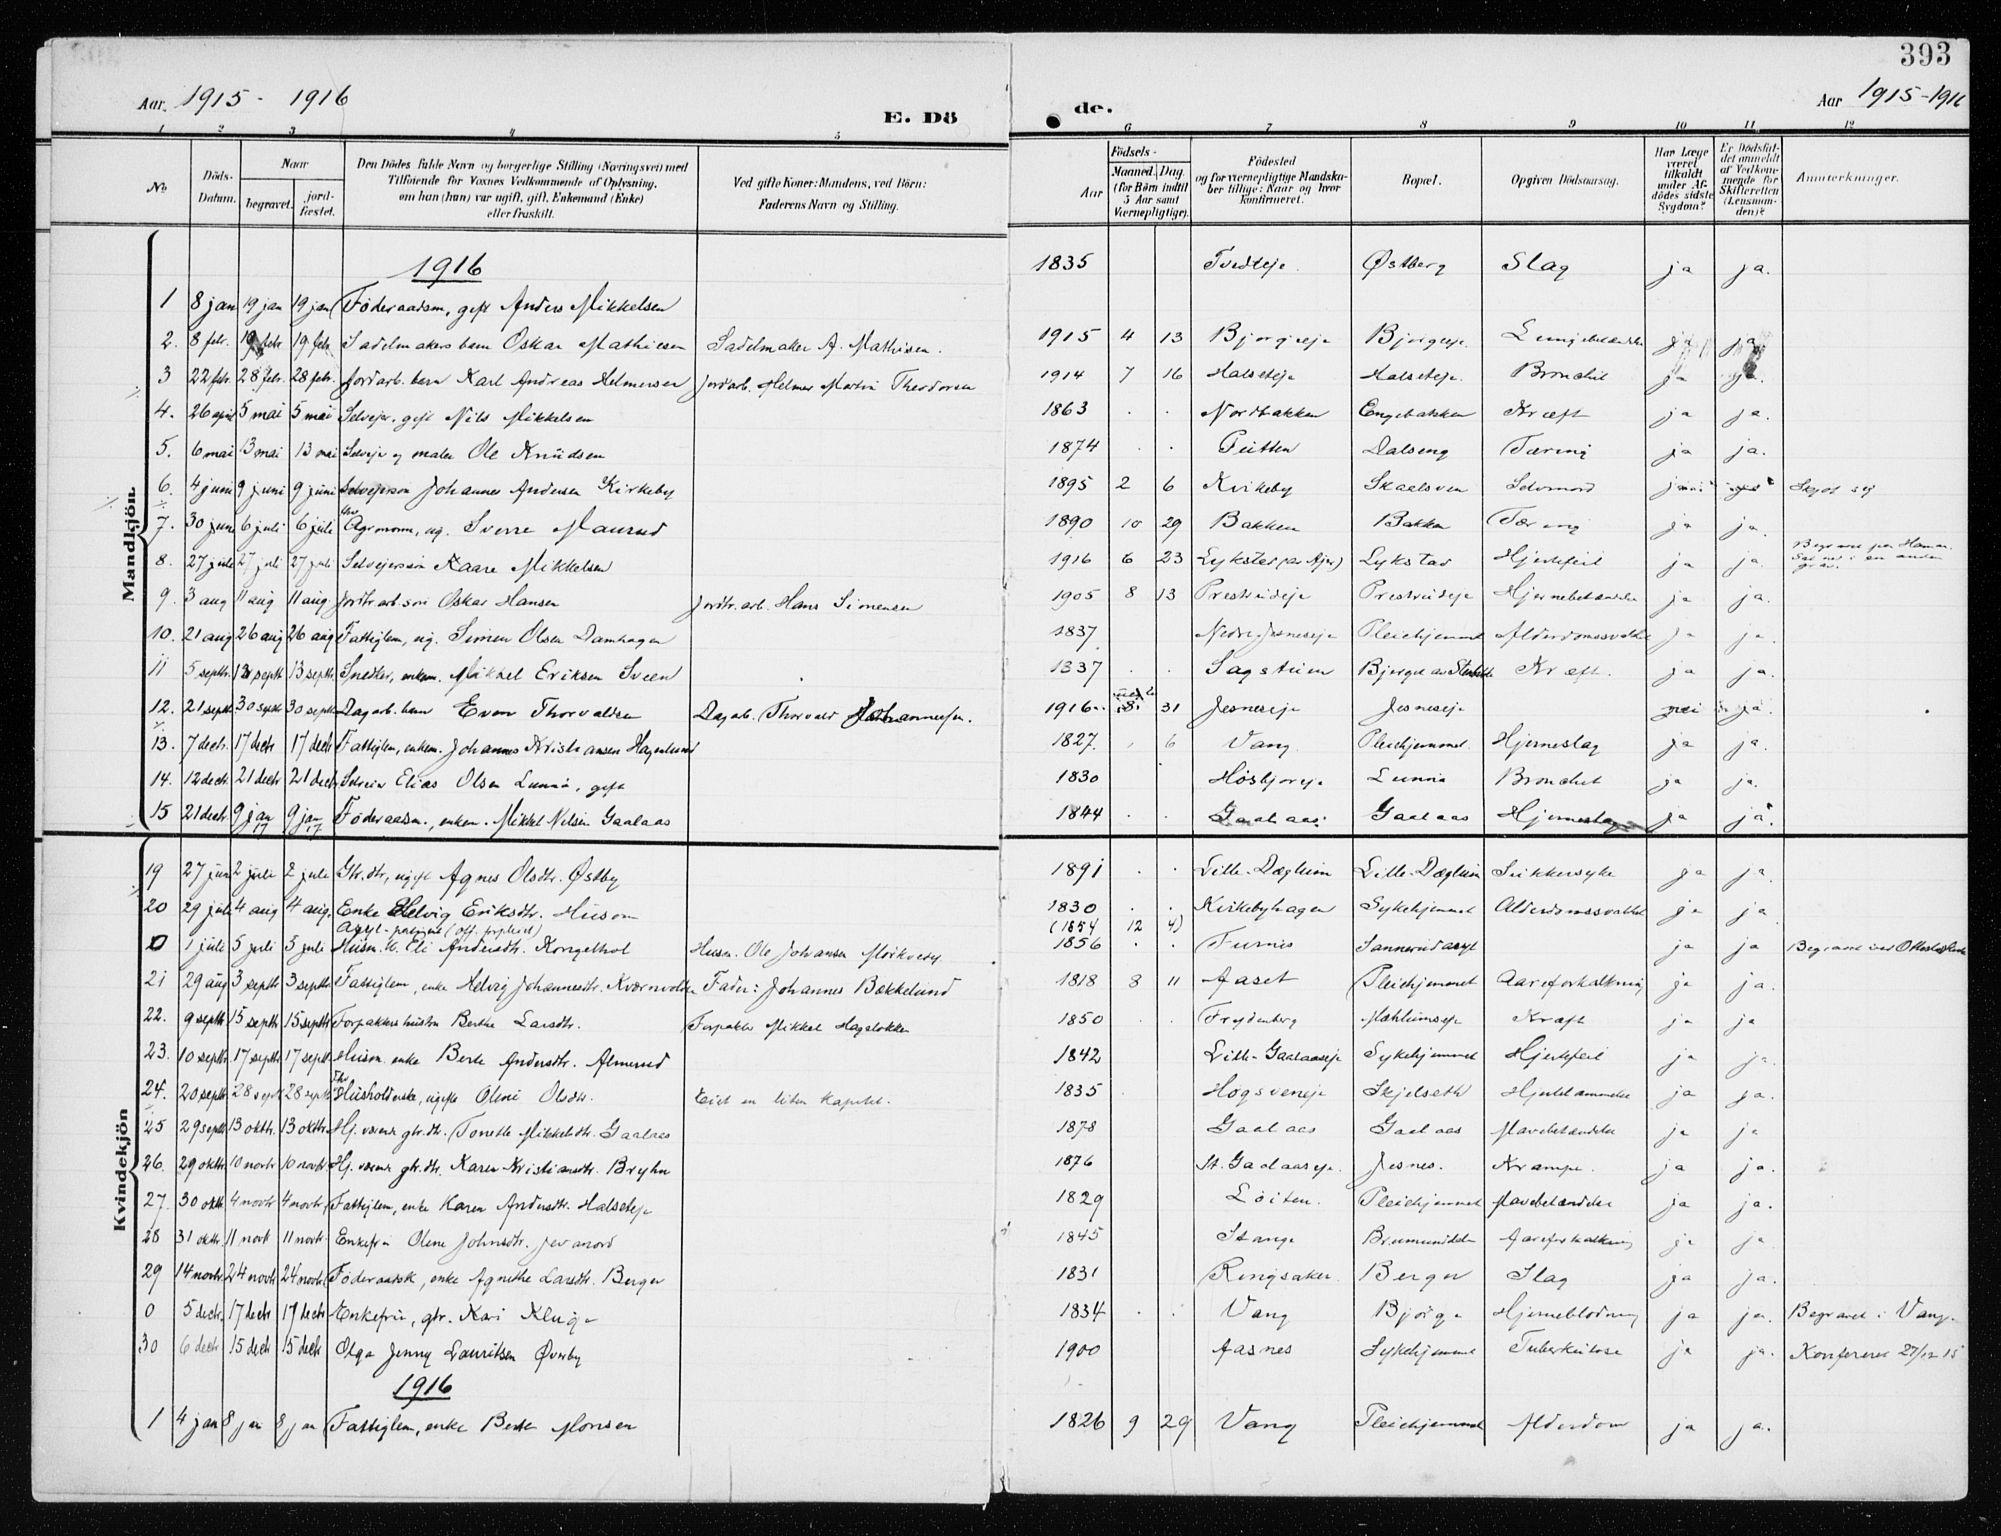 393
Aar 1915 - 1916
E. Dö de.
Aar 1915-191
1 2 3 4 5 6 7 8 9 10 11 12
No
Döds-Datum.
Naar
begravet. jord-fæstet.
Den Dödes fulde Navn og borgerlige Stilling (Næringsvei) med
Tilföiende for Voxnes Vedkommende af Oplysning,
om han (hun) var ugift, gift, Enkemand (Enke)
eller fraskilt.
Ved gifte Koner: Mandens, ved Börn:
Faderens Navn og Stilling.
Aar
Födsels-
Maaned. Dag.
(for Börn indtil
5 Aar samt
Værnepligtige).
Födested
og for værnepligtige Mandska-
ber tillige: Naar og hvor
konfirmeret.
Bopæl.
Opgiven Dödsaarsag.
Har Læge
været
tilkaldt
under Af-
dödes sidste
Sygdom?
Er Dödsfal-
det anmeldt
af Vedkom-
mende for
Skifteretten
(Lensman-
den)?
Anmerkninger.
Mandkjön.
1916
1 8 jan 19 jan 19 jan Föderaadsm, gift Anders Mikkelsen 1835 Tvedteje Østberg Slag ja ja.
2. 8 febr. 19 febr 19 febr. Sadelmakers barn Oskar Mathiesen Sadelmaker A. Mathisen. 1915 4 13 Bjørgeeje Bjørgeeje ja ja
3 22 febr. 28 febr. 28 febr. Jordarb. barn Karl Andreas Helmersen Jordarb. Helmer Martin Theodorsen 1914 7 16 Halseteje Halseteje. Bronchit ja ja.
4. 26 april 5 mai 5 mai Selvejer, gift Nils Mikkelsen 1863 . . Nordbakken Engebakken Kræft ja ja.
5. 6 mai 13 mai 13 mai Selvejer og maler Ole Knudsen 1874 . . Dalseng Tæring ja ja.
6. 4 juni 9 juni 9 juni Selvejersøn Johannes Andersen Kirkeby 1895 2 6 Kvikeby Skaalsven Selvmord Skjøt sig
7. 30 juni 6 juli 6 juli Agronom, ug. Sverre Maurud 1890 10 29 Bakken Bakken Tæring ja ja.
8. 27 juli 27 juli 27 juli Selvejersøn Kaare Mikkelsen 1916 6 23 Lykstad Hjertefeil ja ja.
9. 3 aug 11 aug 11 aug. Jordtr.arb. søn Oskar Hansen Jordtr. arb. Hans Simensen 1905 8 13 Prestrudeje Prestrudeje Hjernebetændelse ja ja.
10. 21 aug 26 aug 26 aug Fattiglem, ug. Simen Olsen Damhagen 1837 Nedre Jesneseje Pleiehjemmet Alderdomssvakhet ja ja.
11 5 septbr. 13 septbr 13 septbr. Snedker, enkem. Mikkel Eriksen Sveen 1837 . . Sagstuen Kræft. ja ja.
12. 21 septbr. 30 septbr 30 septbr. Dagarb. barn Even Thorvaldsen Dagarb. Thorvald Johannessen. 1916 8 31 Jesneseje Jesneseje nei ja.
13. 7 decbr. 17 decbr 17 decbr Fattiglem, enkem. Johannes Kristiansen Hagenlund 1827. . 6 Vang. Pleiehjemmet. Hjerneslag ja ja.
14. 12 decbr. 21 decbr 21 decbr Selveier Elias Olsen Lunna, gift 1830 Høsbjøreje Lunna Bronchit ja ja.
15 21 decbr. 9 jan 17 9 jan 17 Föderaadsm., enkem. Mikkel Nilsen Gaalaas 1844 . . Gaalaas Gaalaas Hjerneslag ja ja.
Kvindekjön
19 27 juni 2 juli 2 juli Gbr.dtr, ugift Agnes Olsdtr. Østby 1891 . . Lille-Dæglum Lille-Dæglum Sukkersyke ja ja.
20 29 juli 4 aug 4 aug. Enke Helvig Eriksdtr. Husom 1830 . . Kirkebyhagen Sykehjemmet Alderdomssvakhet ja ja.
(1854 12 4)
0 1 juli 5 juli 5 juli Husm. k. Eli Andersdtr. Kongelhol Husm. Ole Johansen Mørkveby 1856 . . Furnes Sannerudasyl ja ja
21 29 aug 3 septbr 3 septbr. Fattiglem, enke Helvig Johannesdtr. Kværnvolden Fader: Johannes Bækkelund 1818 8 11 Aaset Pleiehjemmet Aareforkalkning ja ja.
22. 9 septbr 15 septbr 15 septbr Forpakters hustru Berthe Larsdtr. Forpakter Mikkel Hageløkken 1850 . . Frydenberg Mæhlumseje Kræft ja ja
23. 10 septbr. 17 septbr. 17 septbr. Husm. enke Berte Andersdtr. Almerud 1842 Lille-Gaalaaseje Sykehjemmet Hjertefeil ja ja.
24. 20 septbr. 28 septbr 28 septbr Husholderske, ugift Oline Olsdtr. Eiet en liten kapital. 1835 . Høgsveneje Skjelseth Hjertelammelse ja ja.
25 29 septbr. 13 oktbr. 13 oktbr. Hj. værende gbr.dtr. Tonette Mikkelsdtr. Gaalaas 1878 Gaalaas Gaalaas Mavebetændelse ja ja
26. 29 oktbr. 10 novbr 10 novbr. Hj. værende gbr.dtr. Karen Kristiansdtr. Bryhn 1876 St. Gaalaaseje. Jesnes. Krampe. ja ja.
27. 30 oktbr 4 novbr 4 novbr. Fattiglem, enke Karen Andersdtr. Halseteje 1829 Løiten. Pleiehjemmet Mavebetændelse ja ja.
28 31 oktbr. 11 novbr 11 novbr. Enkefru Oline Johnsdtr. Jevanord 1845 Stange Brumunddalen Aareforkalkning ja ja
29 14 novbr. 24 novbr. 24 novbr. Föderaadsk, enke Agnethe Larsdtr. Berger 1831 Ringsaker. Berger Slag ja ja.
0 5 decbr. 17 decbr 17 decbr Enkefru, gbr. Kari Kluge 1834 . . Vang Bjørge Hjerneblødning ja ja. Begravet i Vang.
30 6 decbr 15 decbr 15 decbr Olga Jenny Lauritsen Øverby 1900 Aasnes Sykehjemmet Tuberkulose ja ja. Konfirmeret 27/12 15
1916
1 4 jan 8 jan 8 jan Fattiglem, enke Berte Monsen 1826 9 29 Vang Pleiehjemmet Alderdom ja ja.